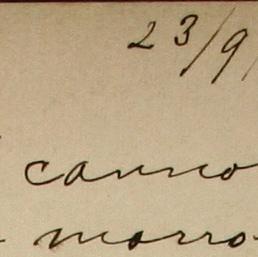 23/9/
canno
morro